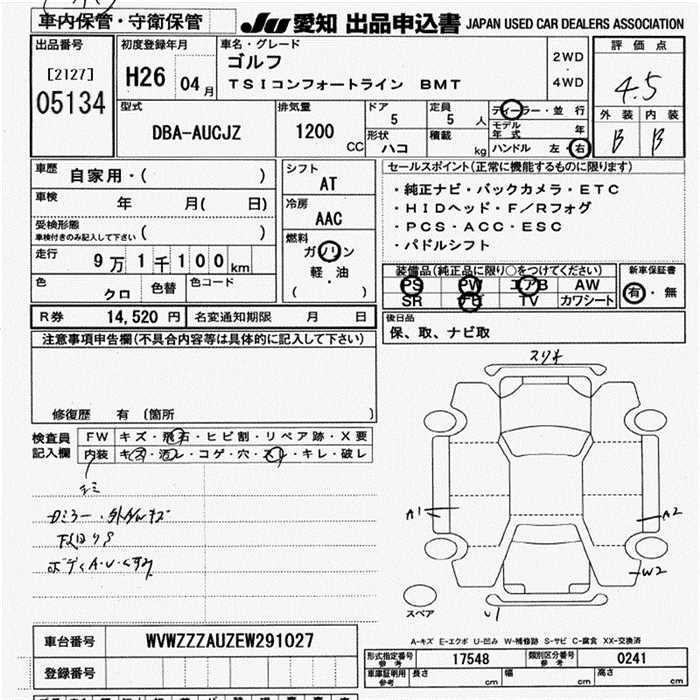 車内保管・守衛保管
JU 愛知 出品申込書 JAPAN USED CAR DEALERS ASSOCIATION
出品番号
[2127]
05134
初度登録年月
H26 04月
車名・グレード
ゴルフ
TSIコンフォートライン BMT
2WD
・
4WD
評価点
4.5
外装 内装
B B
型式
DBA-AUCJZ
排気量
1200
CC
ドア
5
定員
5 人
形状
ハコ
積載
kg
ディーラー・並行
モデル年式 年
ハンドル 左・右
車歴
自家用・( )
車検
年 月( 日)
受検形態
車検付きのみ記入して下さい ( )
走行
9万1千100km
色
クロ
色替
色コード
シフト
AT
冷房
AAC
燃料
ガソリン
軽・油
( )
セールスポイント(正常に機能するものに限ります)
・純正ナビ・バックカメラ・ETC
・HIDヘッド・F/Rフォグ
・PCS・ACC・ESC
・パドルシフト
装備品(純正品に限り○をつけてください)
PS PW エアB AW
SR ナビ TV カワシート
新車保証書
有・無
R券 14,520円 名変通知期限 月 日
後日品
保、取、ナビ取
注意事項申告欄(不具合内容等は具体的に記入して下さい)
修復歴 有 〔箇所 〕
検査員
記入欄
FW キズ・飛石・ヒビ割・リペア跡・X要
内装 キズ・汚レ・コゲ・穴・スレ・キレ・破レ
スリキ
A1
A2
W2
U1
スペア
A-キズ E-エクボ U-凹み W-補修跡 S-サビ C-腐食 XX-交換済
車台番号 WVWZZZAUZEW291027
登録番号
形式指定番号
参考
17548
類別区分番号
参考
0241
車庫証明用
参考
長さ cm 幅 cm 高さ cm